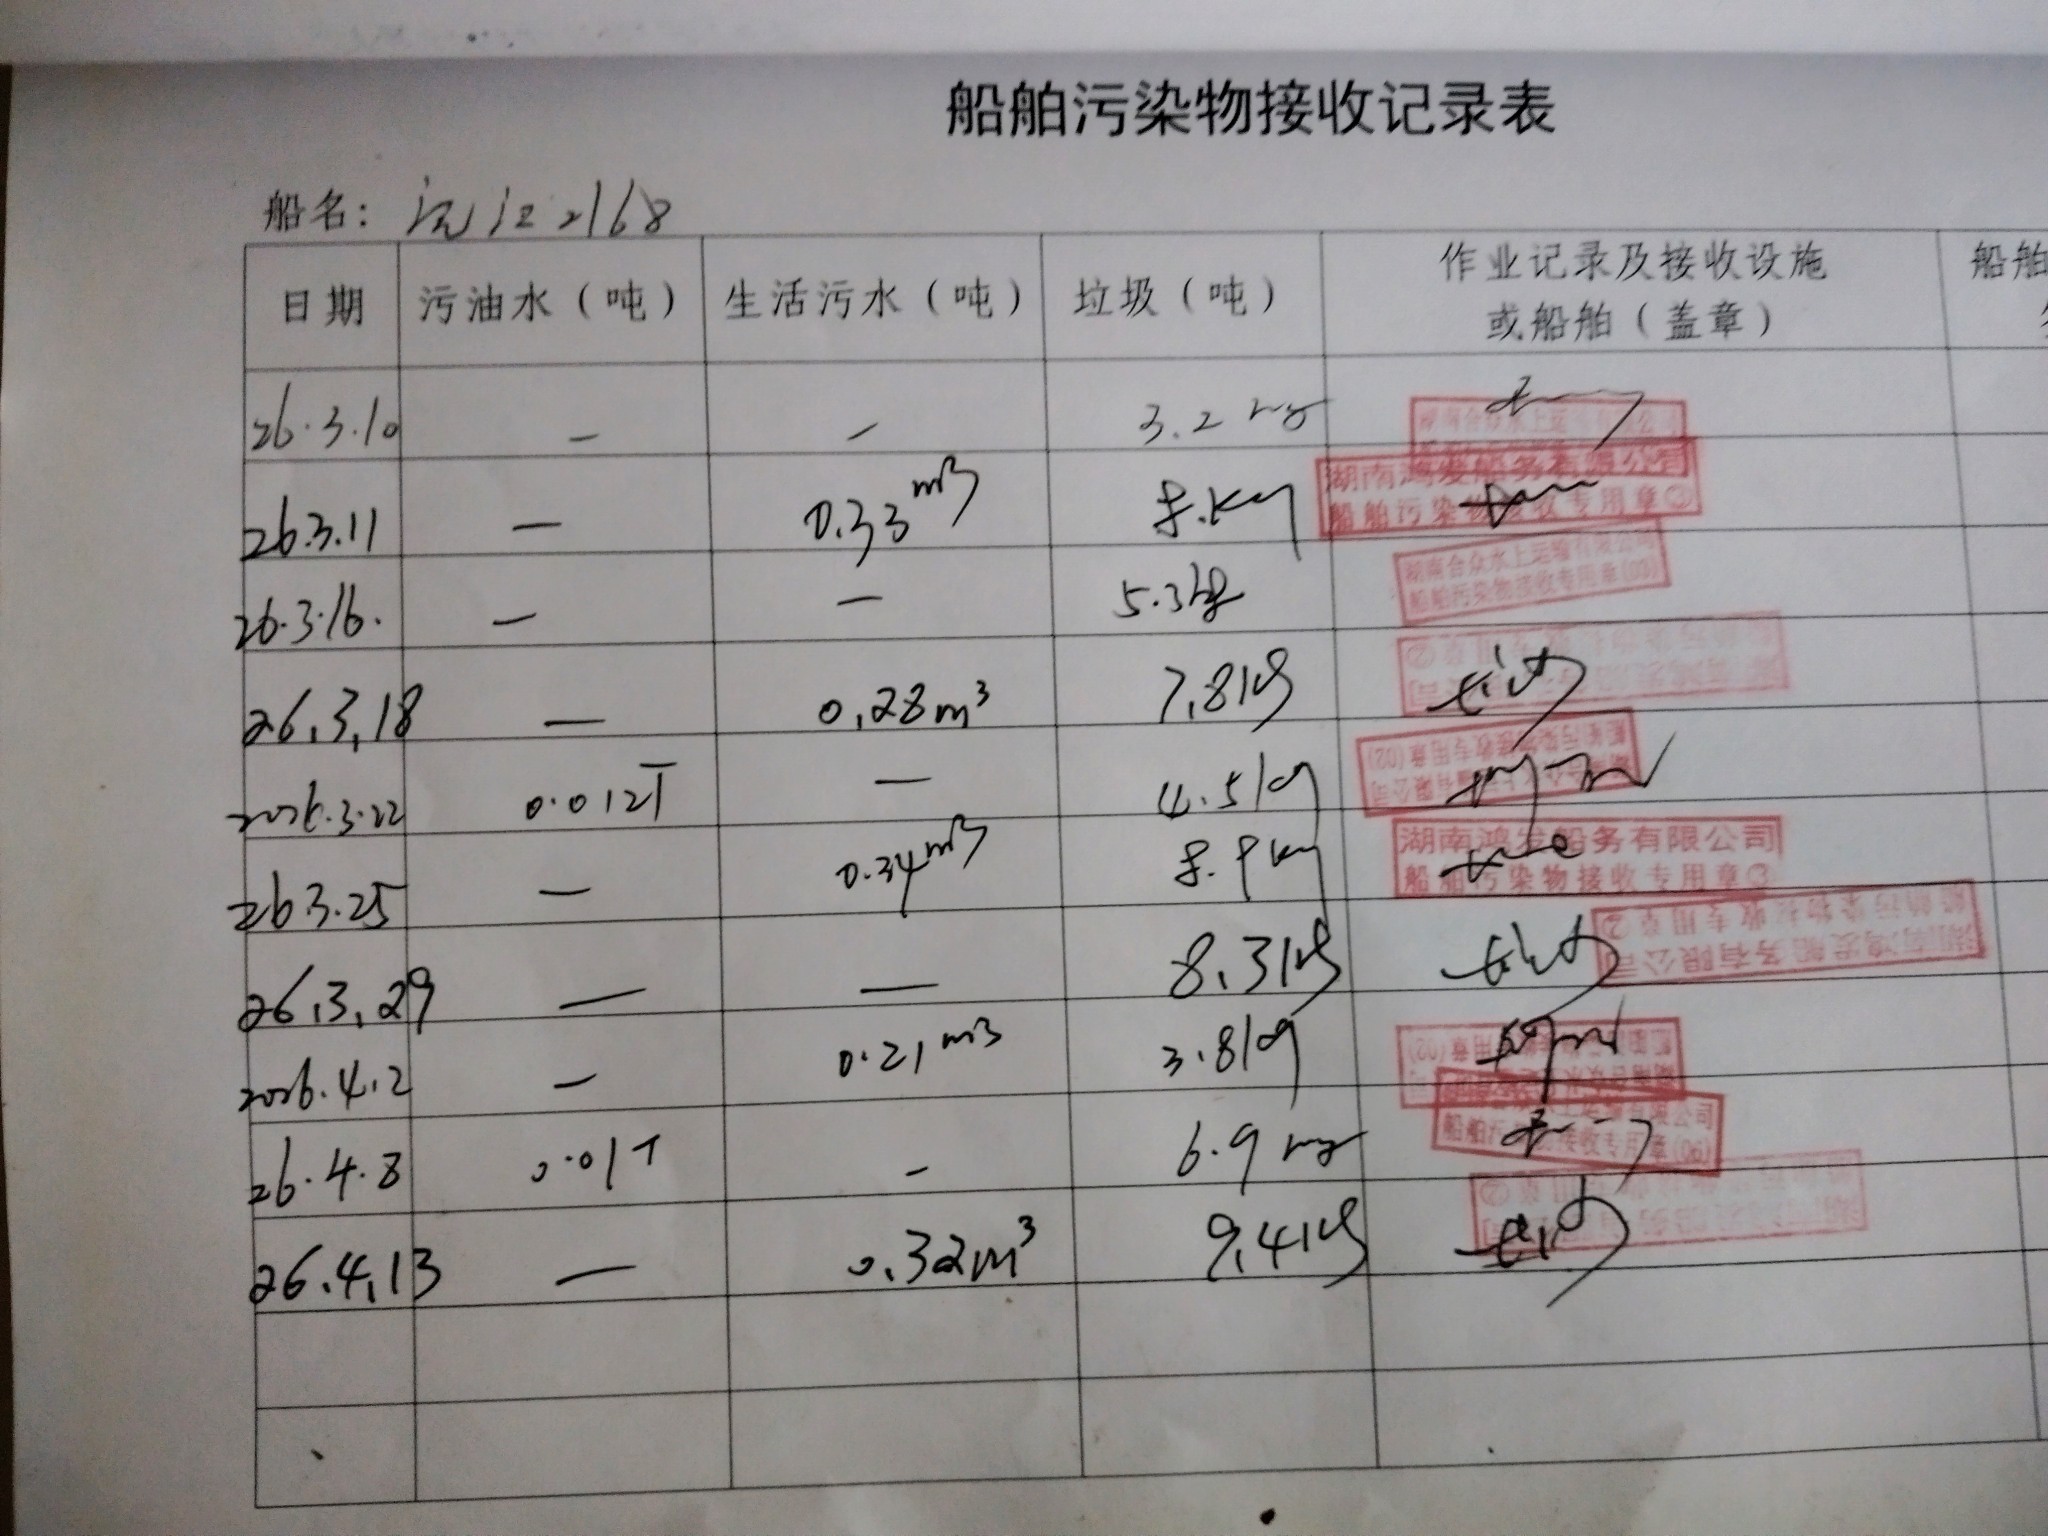 船舶污染物接收记录表
船名: 沅江2168
日期 污油水（吨） 生活污水（吨） 垃圾（吨） 作业记录及接收设施 船舶
或船舶（盖章）
26.3.10 — — 3.2 kg
湖南合众水上运输有限公司
26.3.11 — 0.33 m3 8.kg
湖南鸿发船务有限公司
船舶污染物接收专用章③
26.3.16. — — 5.3kg
湖南合众水上运输有限公司
船舶污染物接收专用章(03)
26,3,18 — 0,28m³ 7,8kg
2026.3.22 0.012T — 4.5kg
船舶污染物接收专用章(02)
26.3.25 — 0.34m3 8.9kg
湖南鸿发船务有限公司
船舶污染物接收专用章③
26,3,29 — — 8,3kg
湖南鸿发船务有限公司
船舶污染物接收专用章②
2026.4.2 — 0.21m3 3.8kg
26.4.8 0.01T — 6.9 kg
船舶污染物接收专用章(06)
26.4,13 — 0.32m³ 9,4kg